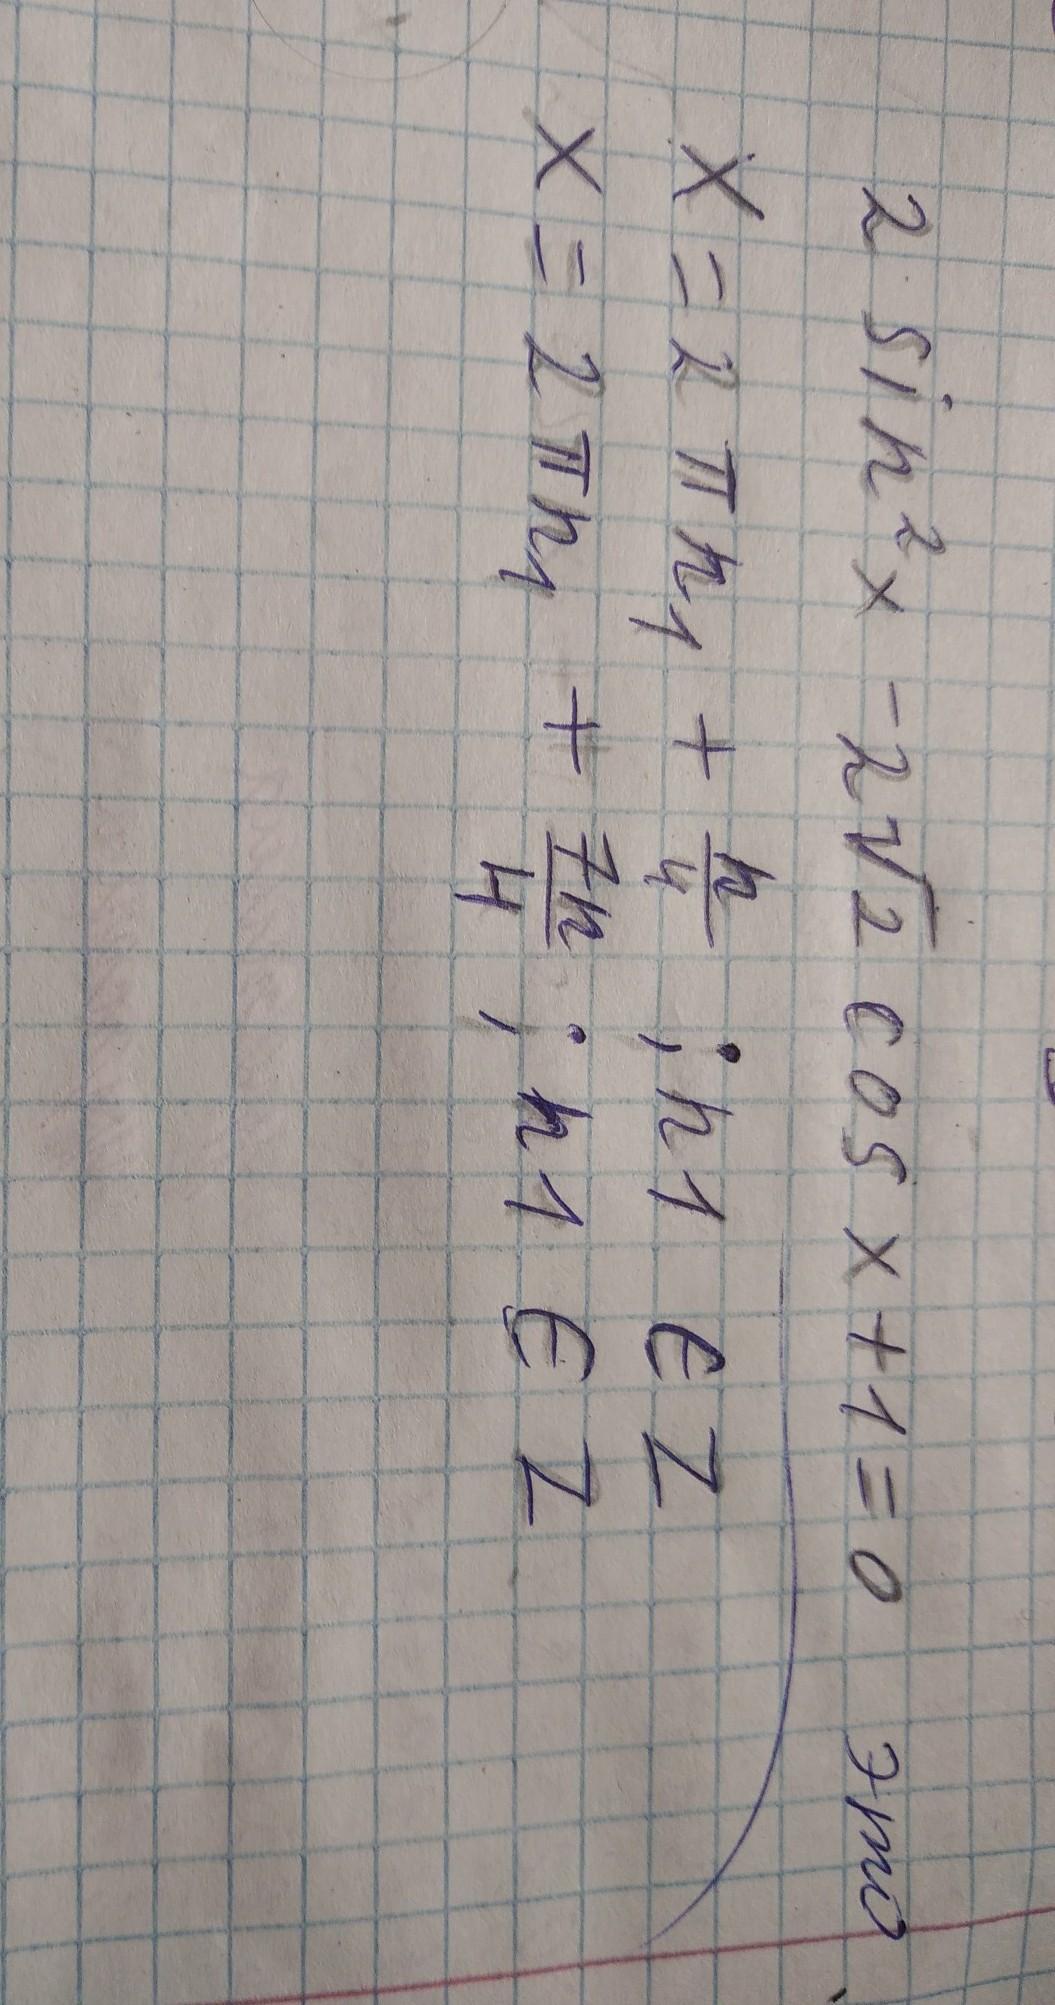 2 sin²x - 2√2 cos x + 1 = 0 это
x = 2πn₁ + n/4 ; n1 ∈ Z
x = 2πn₁ + 7n/4 ; n1 ∈ Z